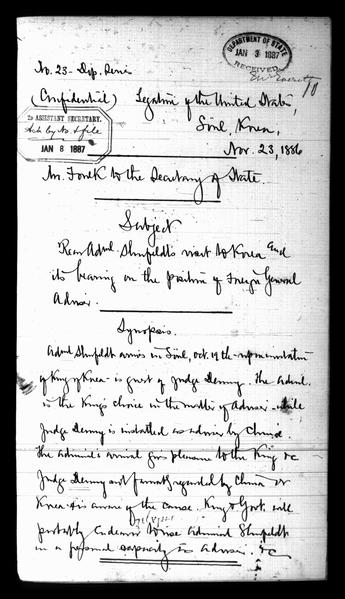 DEPARTMENT OF STATE
JAN 3 1887
RECEIVED
No. 23 - Dip. Series
(Confidential) Legation of the United States,
Söul, Korea,
2D ASSISTANT SECRETARY.
Ack by No. 5 file
JAN 8 1887
Nov. 23, 1886
Mr. Foulk to the Secretary of State.
Subject
Rear Adml. Shufeldt's visit to Korea and
its bearing on the position of Foreign General
Adviser.
Synopsis.
Adml Shufeldt arrives in Söul, Oct. 19th - representation
of King of Korea - is guest of Judge Denny. The Adml.
is the King's choice in the matter of Adviser - while
Judge Denny is installed as adviser by China.
The admiral's arrival gives pleasure to the King &c
Judge Denny not favorably regarded by China or
Korea & is aware of the cause. King & Govt. will
probably endeavor to use Admiral Shufeldt
in a personal capacity as adviser. &c